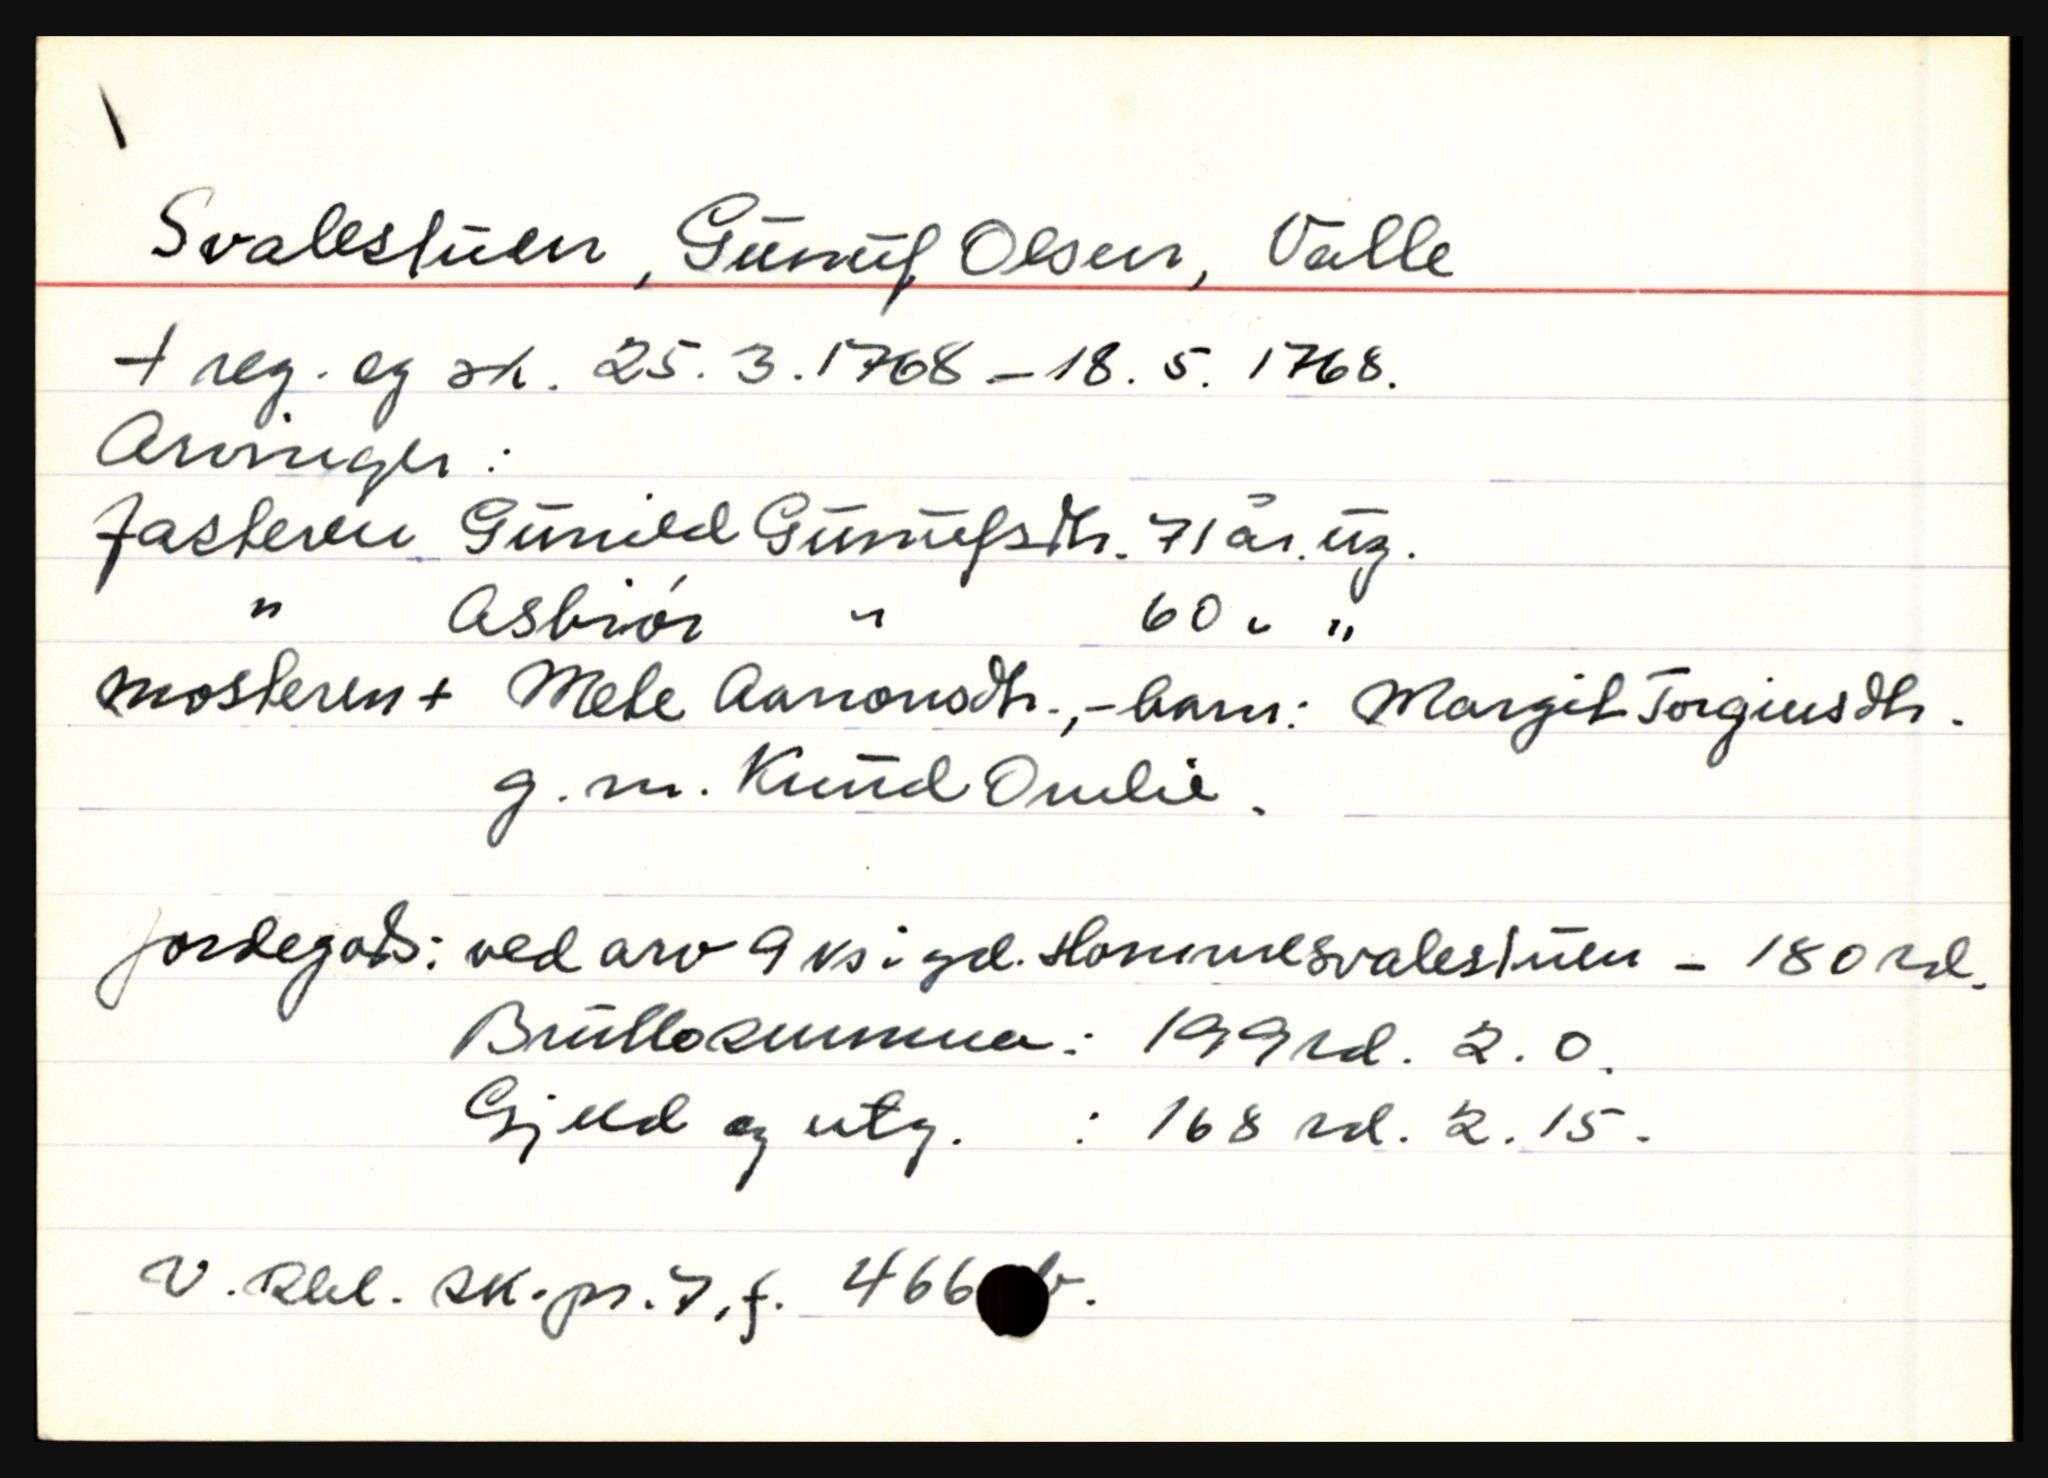 Svalestuen, Gunuf Olsen, Valle
+ reg. og sk. 25.3.1768 – 18.5.1768.
Arvinger:
fasteren Gunild Gunufsdtr. 71 år. ug.
" Asbiör " 60 " "
mosteren + Mete Aanonsdtr., – barn: Margit Torgiusdtr.
g.m. Knud Omlie.
jordegods: ved arv 9 ks i gd. Hommesvalestuen – 180 rd.
Bruttosumma: 199 rd. 2. 0.
Gjeld og utg. : 168 rd. 2. 15.
V. Rbl. sk.pr. 7, f. 466 b.